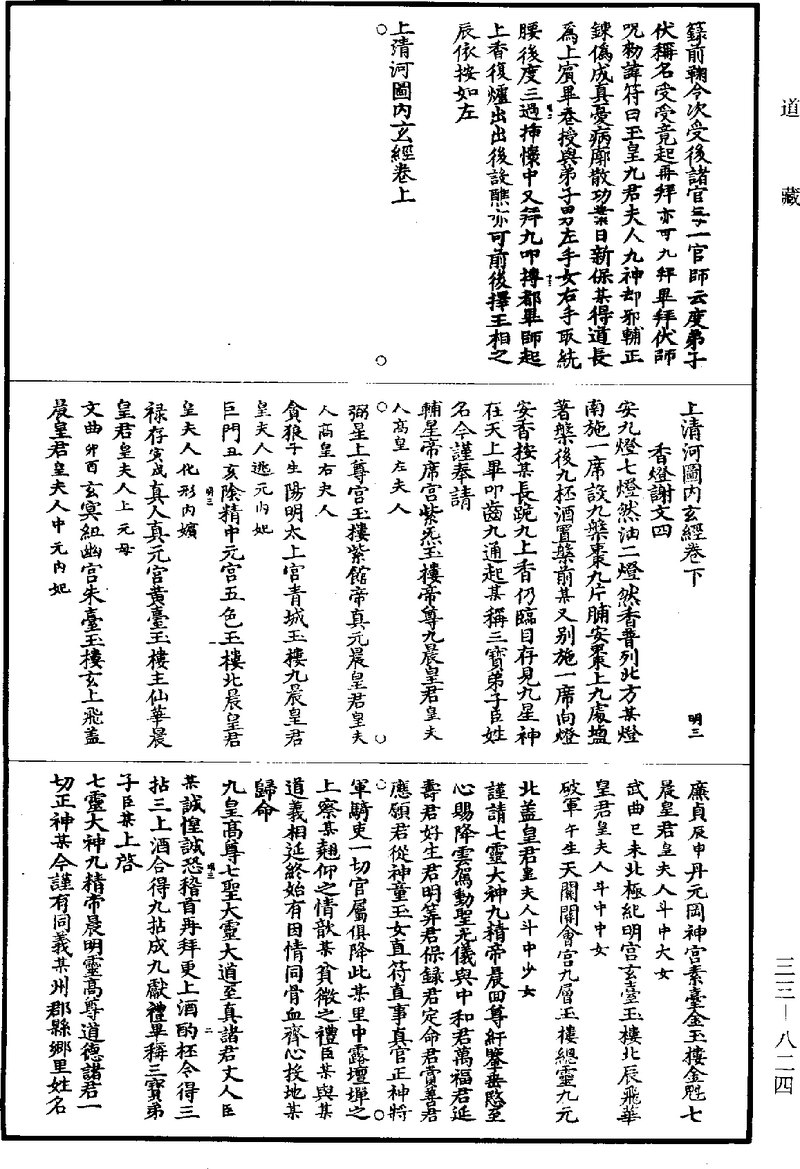 道藏
籙前鞠今次受後諸官三一官師云度弟子
伏稱名受受竟起再拜亦可九拜畢拜伏師
咒勑諱符曰玉皇九君夫人九神却邪輔正
鍊偽成真憂病廓散功業日新保某得道長
為上賓畢卷授與弟子男左手女右手取統
腰後度三過揷懷中又拜九叩摶都畢師起
上香後爐出出後設醮亦可前後擇王相之
辰依按如左
上清河圖內玄經卷上
上清河圖內玄經卷下 明三
香燈謝文四
安九燈七燈然油二燈然香普列北方某燈
南施一席設九槃棗九片脯安棗上九處塩
著槃後九柸酒置槃前某又别施一席向燈
安香按某長跪九上香仍臨目存見九星神
在天上畢叩齒九通起某稱三寶弟子臣姓
名今謹奉請
輔星帝席宫紫炁玉樓帝尊九晨皇君皇夫
人高皇左夫人
弼星上尊宫玉樓紫館帝真元晨皇君皇夫
人高皇右夫人
貪狼子生陽明太上宫青城玉樓九晨皇君
皇夫人逃元內妃
巨門丑亥陰精中元宫五色玉樓北晨皇君
皇夫人化形內嬪
明三
禄存寅戌真人真元宫黄臺玉樓主仙華晨
皇君皇夫人上元母
文曲卯酉玄冥紐幽宫朱臺玉樓玄上飛蓋
晨皇君皇夫人中元內妃
廉貞辰申丹元岡神宫素臺金玉樓金魁七
晨皇君皇夫人斗中大女
武曲巳未北極紀明宫玄臺玉樓北辰飛華
皇君皇夫人斗中中女
破軍午生天關關會宫九層玉樓總靈九元
北盖皇君皇夫人斗中少女
謹請七靈大神九精帝晨回尊紆轝垂愍至
心賜降雲駕動聖光儀與中和君萬福君延
壽君好生君明筭君保録君定命君賞善君
應願君從神童玉女直符直事真官正神將
軍騎吏一切官屬俱降此某里中露壇墠之
上察某翹仰之情歆某貧微之禮臣某與某
道義相延終始有因情同骨血齊心投地某
歸命
九皇高尊七聖大靈大道至真諸君丈人臣
某誠惶誠恐稽首再拜更上酒酌柸令得三
拈三上酒合得九拈成九獻禮畢稱三寶弟
子臣某上啓
七靈大神九精帝晨明靈高尊道德諸君一
切正神某今謹有同義某州郡縣鄉里姓名
三三—八二四